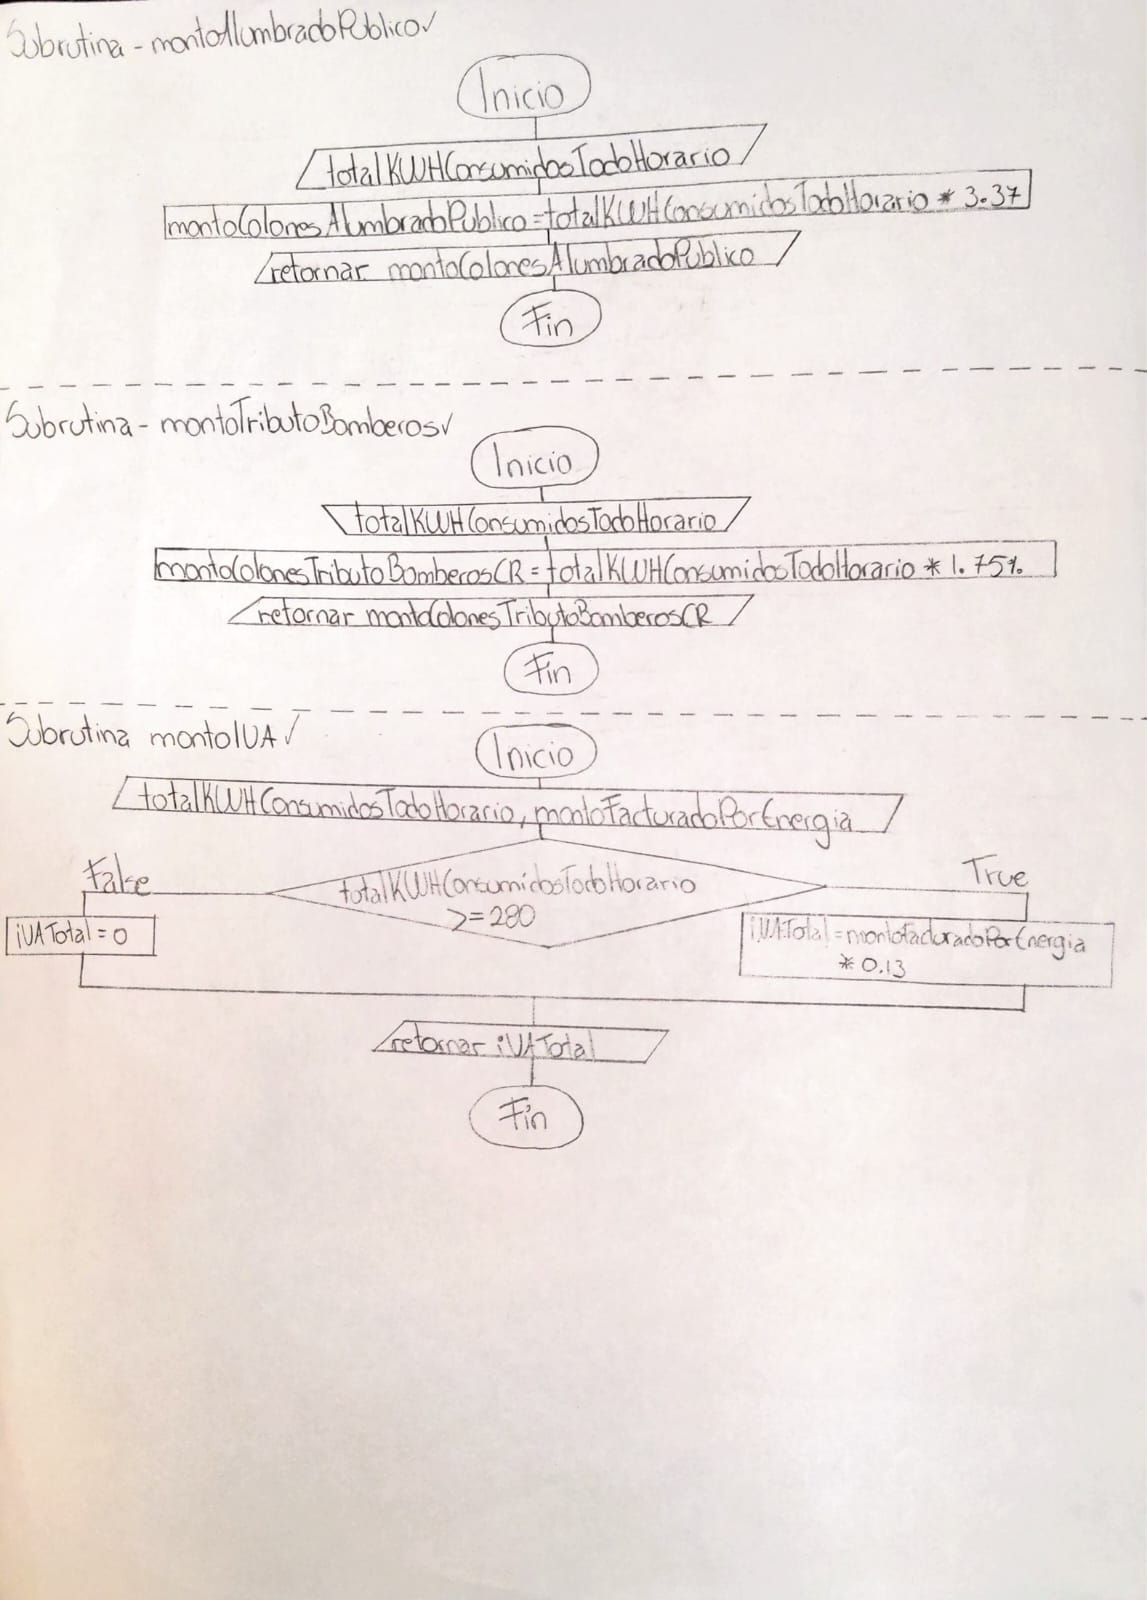 Subrutina - montoAlumbradoPublico✓
Inicio
totalKWHConsumidosTodoHorario
montoColonesAlumbradoPublico=totalKWHConsumidosTodoHorario * 3.37
retornar montoColonesAlumbradoPublico
Fin
Subrutina - montoTributoBomberos✓
Inicio
totalKWHConsumidosTodoHorario
montoColonesTributoBomberosCR = totalKWHConsumidosTodoHorario * 1.75%
retornar montoColonesTributoBomberosCR
Fin
Subrutina montoIVA✓
Inicio
totalKWHConsumidosTodoHorario, montoFacturadoPorEnergia
False
True
totalKWHConsumidosTodoHorario
>=280
iVATotal = 0
iVATotal = montoFacturadoPorEnergia
* 0.13
retornar iVATotal
Fin